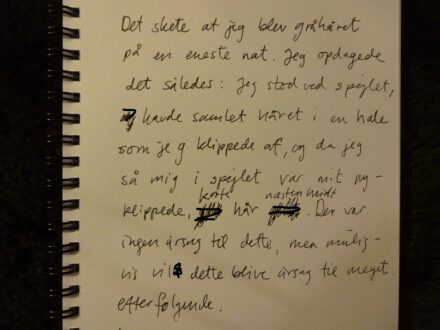 Det skete at jeg blev gråhåret
på en eneste nat. Jeg opdagede
det således: Jeg stod ved spejlet,
havde samlet håret i en hale
som jeg klippede af, og da jeg
så mig i spejlet var mit ny-
klippede, korte hår næsten hvidt. Der var
ingen årsag til dette, men mulig-
vis vil dette blive årsag til meget
efterfølgende.